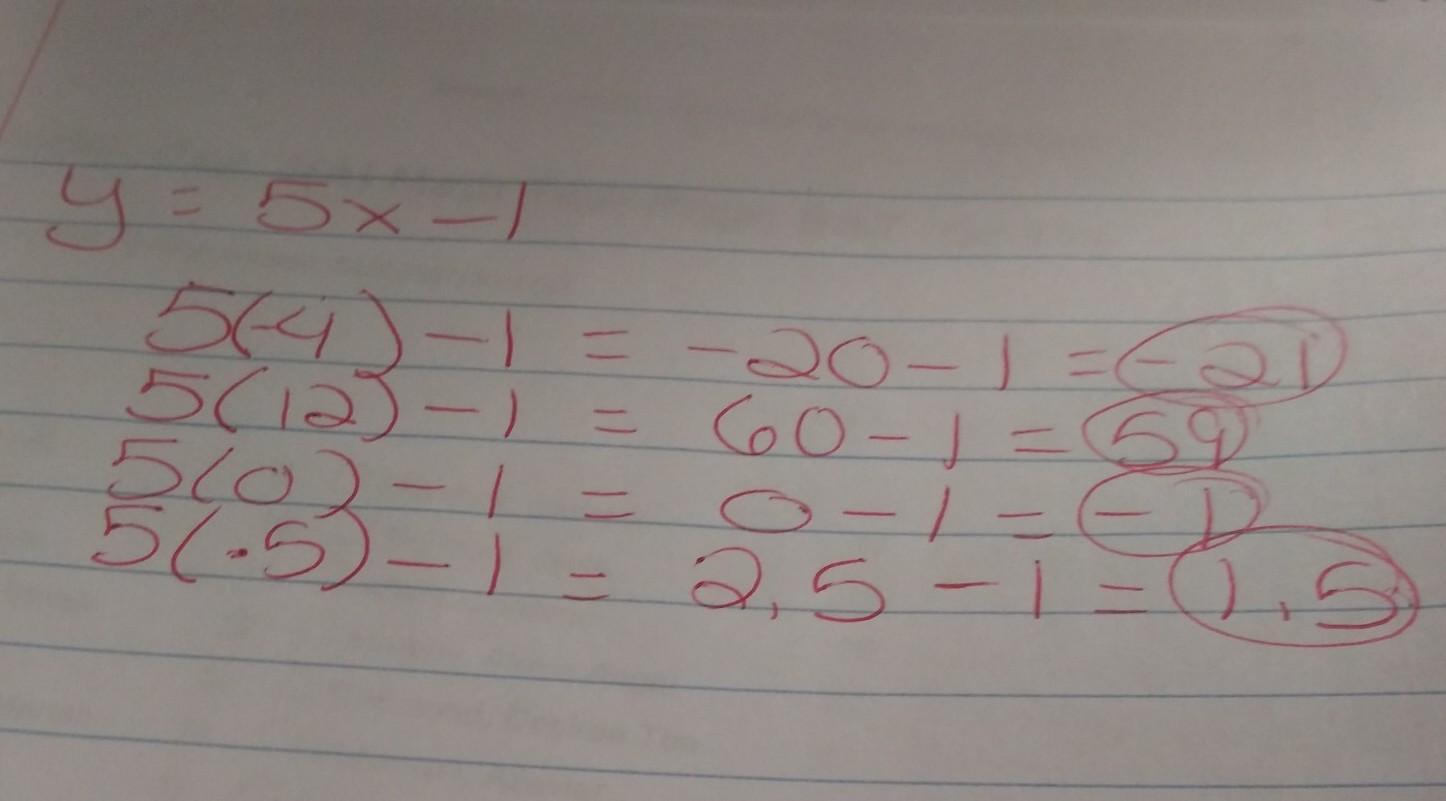 y = 5x - 1
5(-4) - 1 = -20 - 1 = -21
5(12) - 1 = 60 - 1 = 59
5(0) - 1 = 0 - 1 = -1
5(.5) - 1 = 2,5 - 1 = 1,5